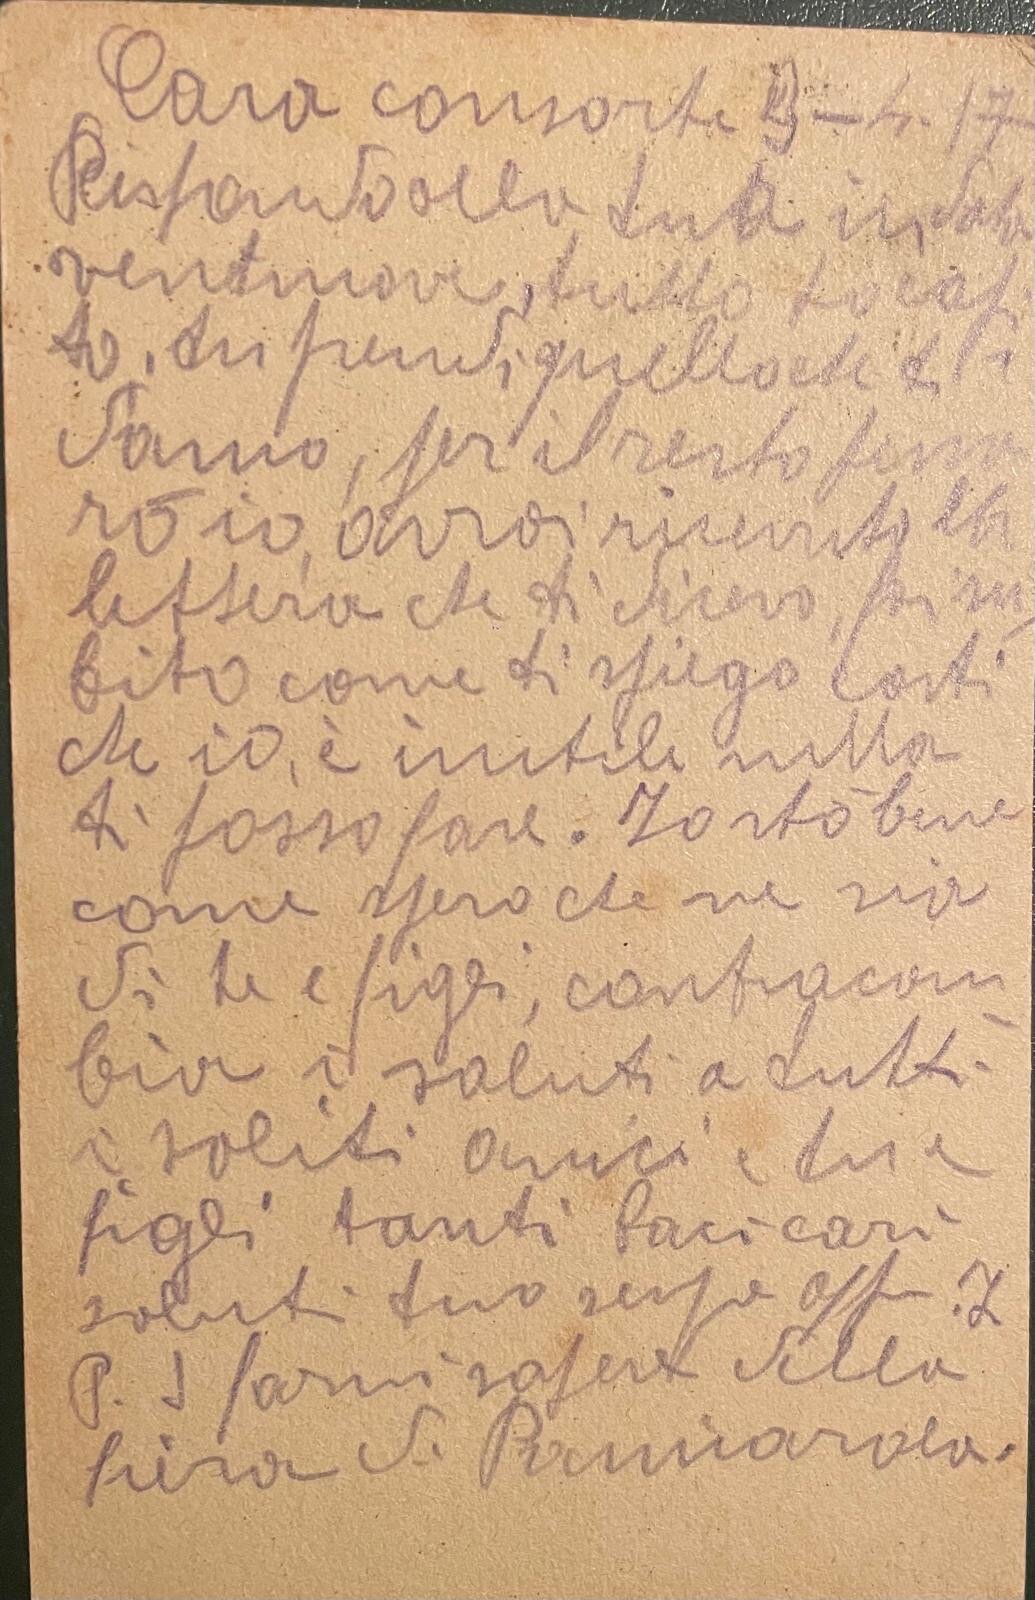 Cara consorte 3-4-17
Rispondo alla tua in data
ventinove, tutto ho capi
to, tu prendi quello che ti
danno, per il resto penze
rò io, avrai ricevuto la
lettera che ti dicevo, fai su
bito come ti spiego costi
che io, è inutile nulla
ti posso fare. Io sto bene
come spero che ne sia
di te e figli, contracam
bia i saluti a tutti
i soliti amici e tu e
figli tanti baci cari
saluti tuo sempre aff. I
P. S farmi sapere della
fiera di